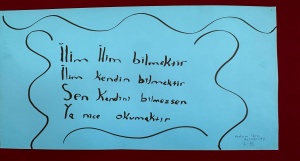 İlim İlim bilmektir
İlim kendin bilmektir
Sen Kendini bilmezsen
Ya nice okumaktır